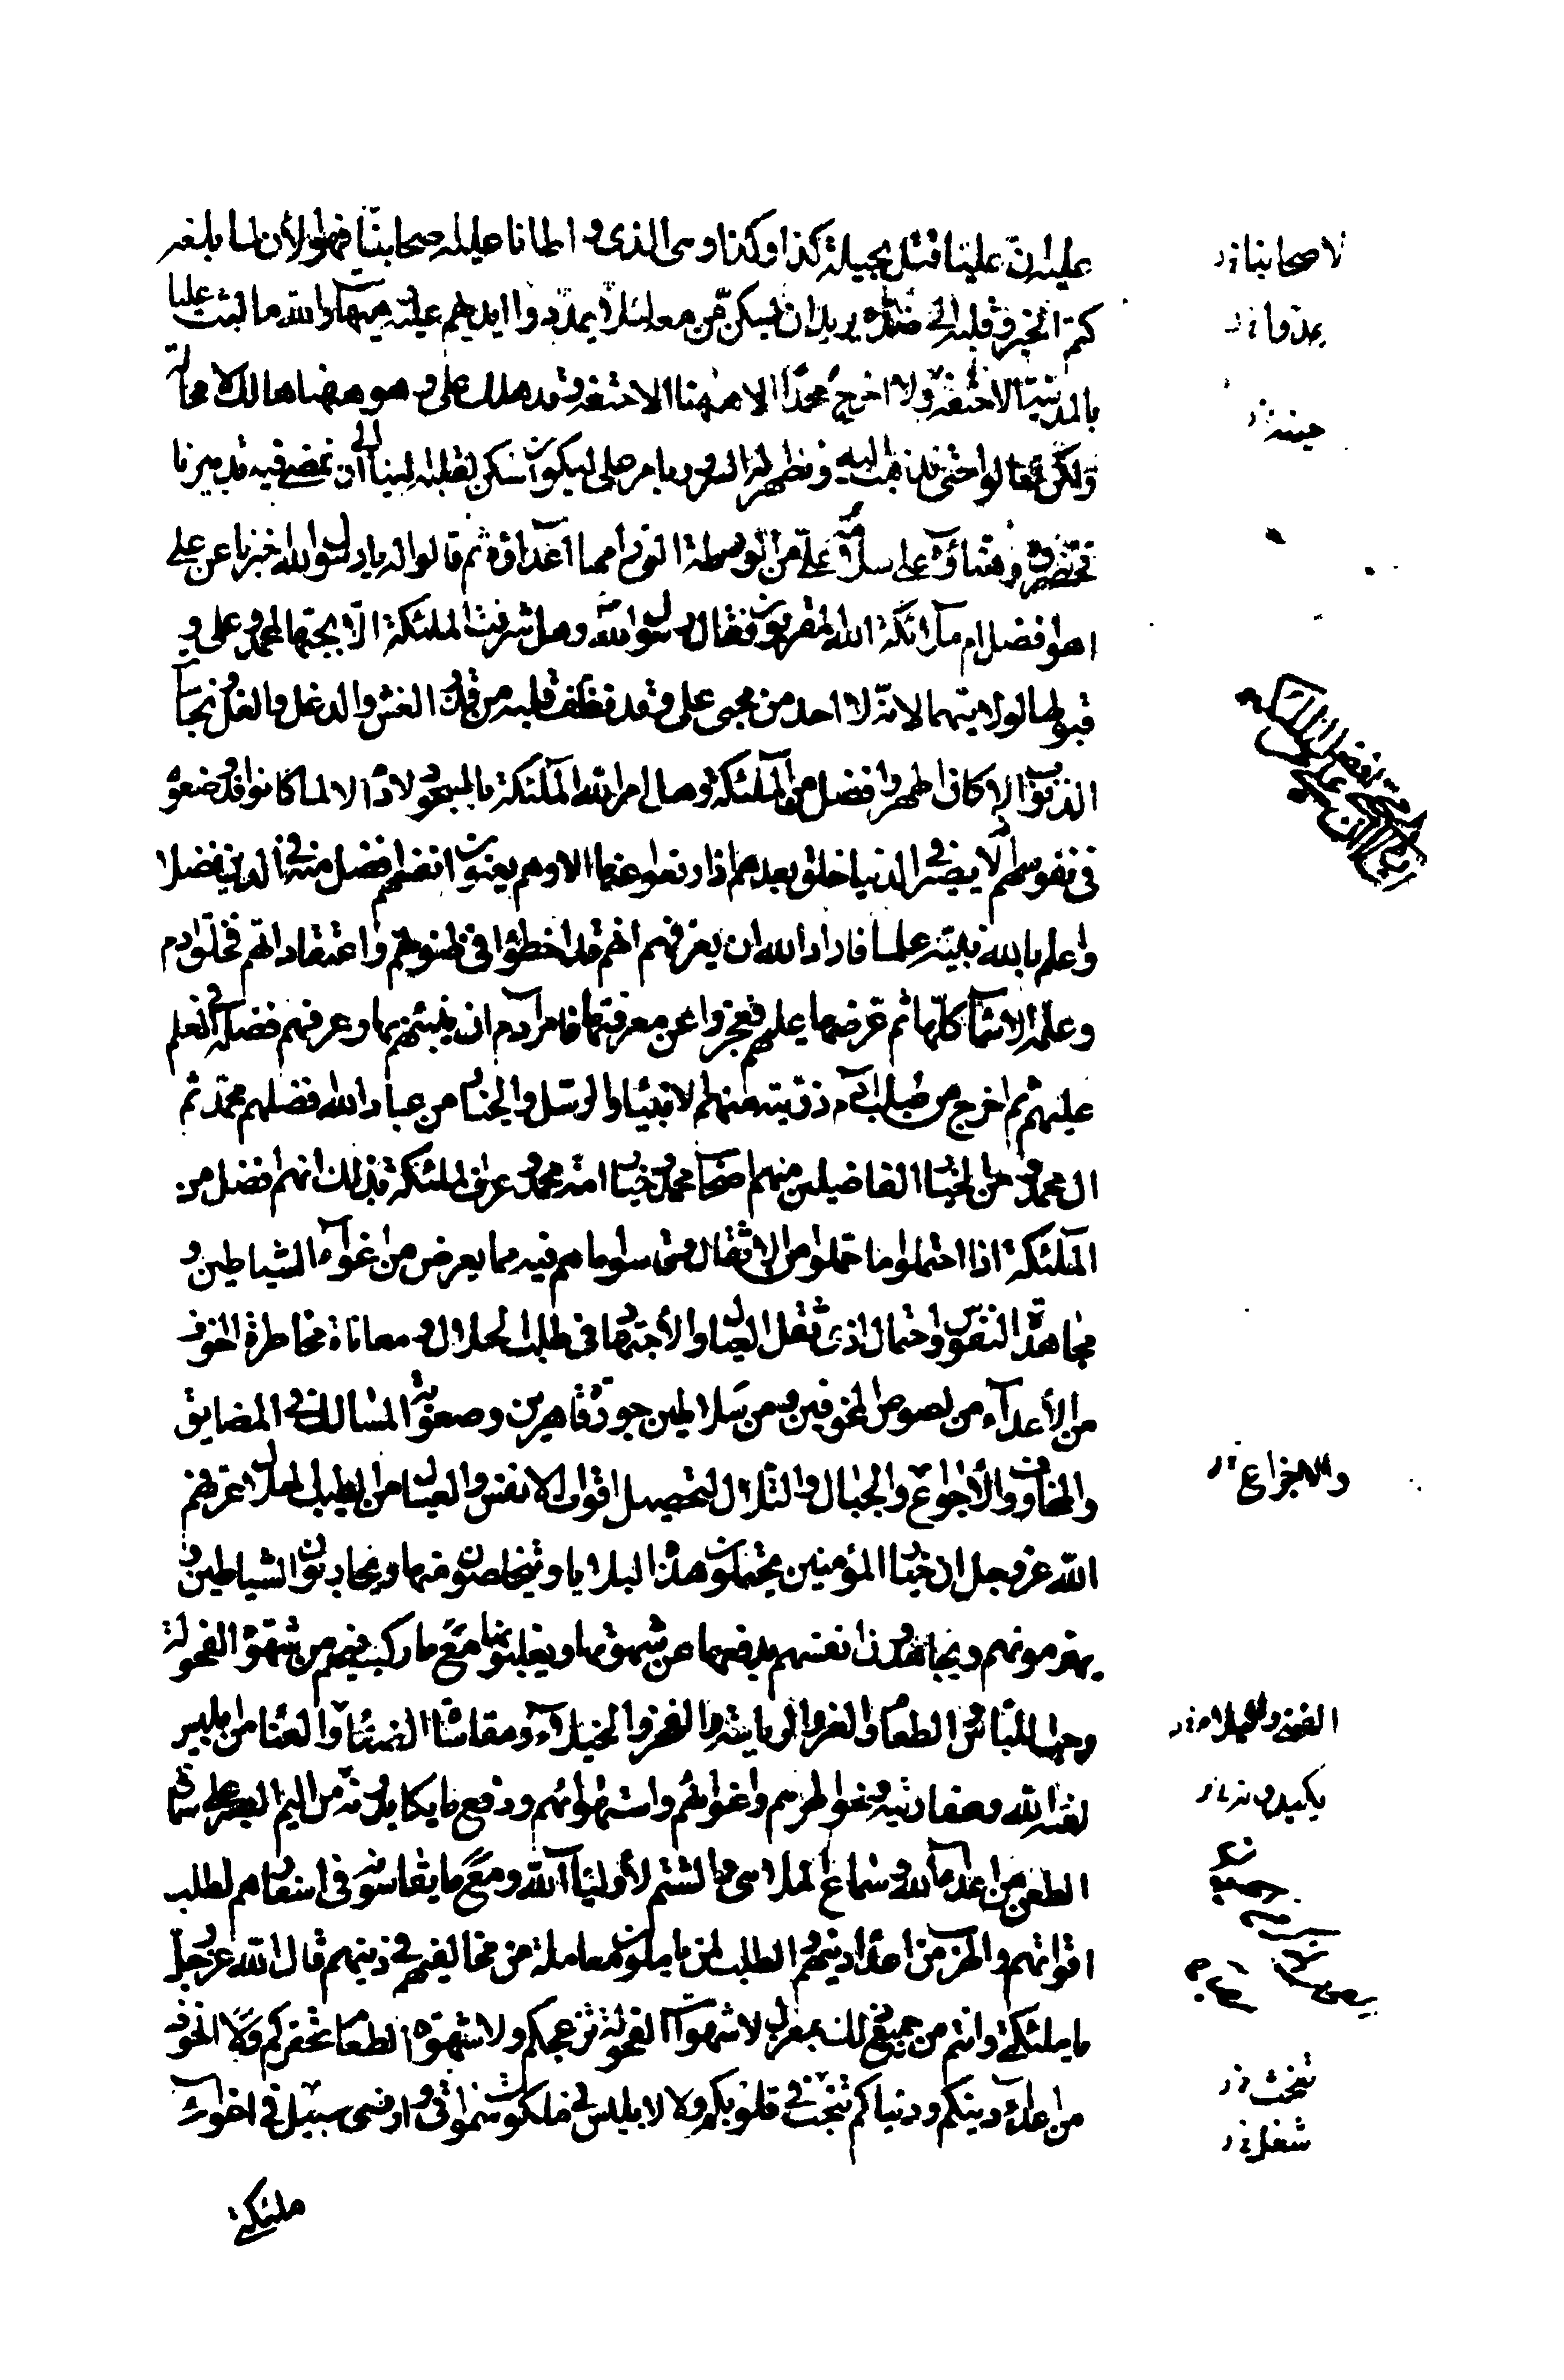 عليا دق علينا فقتل بحيلة كذا وكذا وهي الذي واطانا عليه صحابنا فهو الأن لما بلغه
كتم الخبر وقلبه الى ضده يريد ان يسكن من معه لئلا يمدوا ايديهم عليه هيهات والله ما لبث عليا
بالمدينة الا حتفه ولا اخرج محمدا الا ههنا الا حتفه وقد هلك علي وهو ههنا هالك لا محالة
ولكن تعالوا حتى نذهب اليه ونظهر له السرور بامر علي ليكون اسكن لقلبه الينا الى ان نمضي فيه تدبيرنا
فحضروه وهنأوه على سلامة علي من الورطة التي رامها اعداؤه ثم قالوا له يا رسول الله اخبرنا عن علي
اهو افضل ام ملائكة الله المقربون فقال رسول الله وهل شرفت الملئكة الا بحبها لمحمد وعلي و
قبولها لولايتهما لانه لا احد من محبي علي وقد نظف قلبه من قذر الغش والدغل والغل ونجاسة
الذنوب الا كان اطهر وافضل من الملئكة وهل امر الله الملئكة بالسجود لادم الا لما كانوا قد وضعوه
في نفوسهم لا يصير في الدنيا خلق بعدهم اذا رفعوا عنها الا وهم يعنون انفسهم افضل منه في الدين فضلا
واعلم بالله وبدينه علما فاراد الله ان يعرفهم انهم قد اخطؤا في ظنونهم واعتقاداتهم فخلق ادم
وعلمه الاسماء كلها ثم عرضها عليهم فعجزوا عن معرفتها فامر آدم ان ينبئهم بها وعرفهم فضله في العلم
عليهم ثم اخرج من صلب آدم ذريته منهم الانبياء والرسل والخيار من عباد الله فضلهم محمد ثم
ال محمد ومن الخيار الفاضلين منهم اصحاب محمد وخيار امة محمد وعرف الملئكة بذلك انهم افضل من
الملئكة اذا احتملوا ما حملوا من الاثقال وقاسوا ما هم فيه مما يعرض من اغواء الشياطين و
مجاهدة النفوس واحتمال اذى ثقل العيال والاجتهاد في طلب الحلال ومعاناة مخاطرة الخوف
من الأعداء من لصوص مخوفين ومن سلاطين جورة قاهرين وصعوبة المسالك في المضايق
والمخاوف والأجواع والجبال والتلال لتحصيل اقوات الانفس والعيال من الطيب الحلال عرفهم
الله عز وجل ان خيار المؤمنين يحتملون هذه البلايا ويتخلصون منها ويحاربون الشياطين و
يهزمونهم ويجاهدون انفسهم بدفعها عن شهوتها ويغلبونها مع ما ركب فيهم من شهوة الفحولة
وحب اللباس والطعام والعز والرياسة والفخر والخيلاء ومقاساة العناء والبلاء من ابليس
لعنه الله وعفاريته وخواطرهم واغوائهم واستهوائهم ودفع ما يكايدونه من اليم الصبر على سماع
الطعن من اعداء الله وسماع الملاهي والشتم لأولياء الله ومع ما يقاسونه في اسفارهم لطلب
اقواتهم والهرب من اعداء دينهم والطلب لمن يأملون معاملته من مخالفيهم في دينهم قال الله عز وجل
يا ملئكتي وانتم من جميع ذلك بمعزل لا شهوات الفحولة تزعجكم ولا شهوة الطعام تحفزكم ولا الخوف
من اعداء دينكم ودنياكم تنخب في قلوبكم ولا لابليس في ملكوت سمواتي وارضي سبيل في اغواء
ملئكتي
لاصحابنا نز
يمدوا نز
والاجزاع نز
الفخر والخيلاء نز
يكيدونه نز
تنخب نز
شغل نز